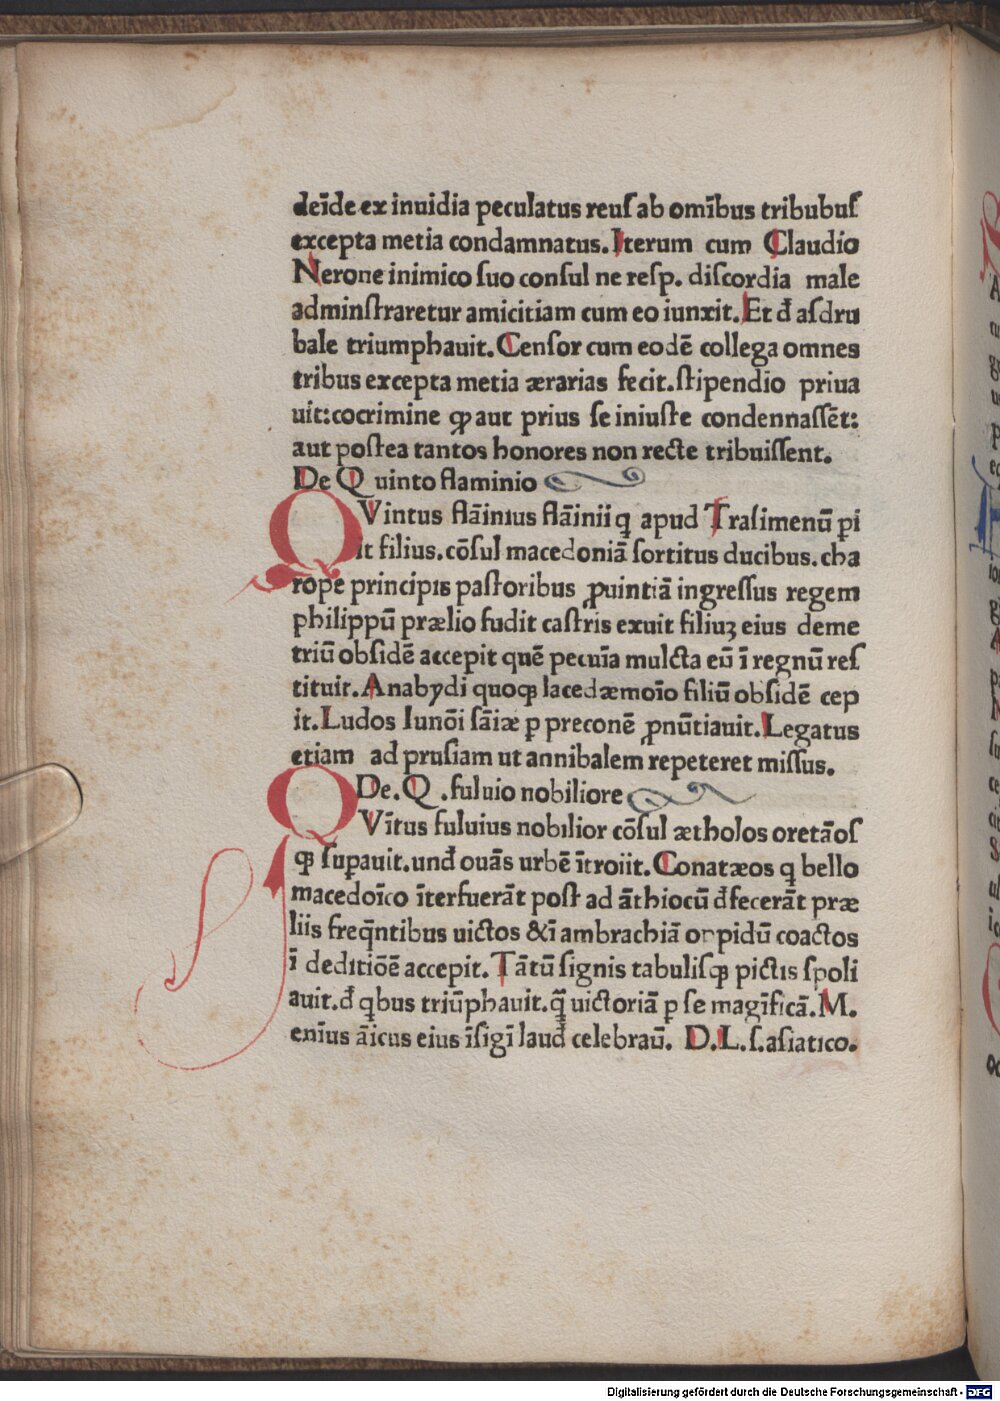 deīde ex inuidia peculatus reuſ ab omībus tribubuſ
excepta metia condamnatus. Iterum cum Claudio
Nerone inimico ſuo conſul ne reſp. diſcordia male
adminſtraretur amicitiam cum eo iunxit. Et đ aſdru
bale triumphauit. Cenſor cum eodē collega omnes
tribus excepta metia ærarias fecit. ſtipendio priua
uit: cocrimine ꝙ aut prius ſe iniuſte condennaſſēt:
aut poſtea tantos honores non recte tribuiſſent.
De Q uinto flaminio
QVintus flāinius flāinii q̨ apud Traſimenū pi
it filius. cōſul macedoniā ſortitus ducibus. cha
rope principis paſtoribus ꝓuintiā ingreſſus regem
philippū prælio fudit caſtris exuit filiuꝫ eius deme
triū obſidē accepit quē pecuīa mulcta eū ī regnū reſ
tituit. A nabydi quoqꝫ lacedæmoīo filiū obſidē cep
it. Ludos Iunōi ſāiæ p preconē ꝓnūtiauit. Legatus
etiam ad pruſiam ut annibalem repeteret miſſus.
De. Q . fuluio nobiliore
QVītus fuluius nobilior cōſul ætholos oretāoſ
qꝫ ſuꝑauit. unđ ouās urbē ītroiit. Conatæos q bello
macedoīco īterfuerāt poſt ad āthiocū đfecerāt præ
liis freq̄ntibus uictos &ī ambrachiā oppidū coactos
ī deditiōē accepit. Tātū ſignis tabuliſqꝫ pictis ſpoli
auit. đ qbus triūphauit. q̄ uictoriā p ſe magīficā. M.
enīus āicus eius īſigī lauđ celebraū. D. L. ſ. aſiatico.
Digitalisierung gefördert durch die Deutsche Forschungsgemeinschaft - DFG